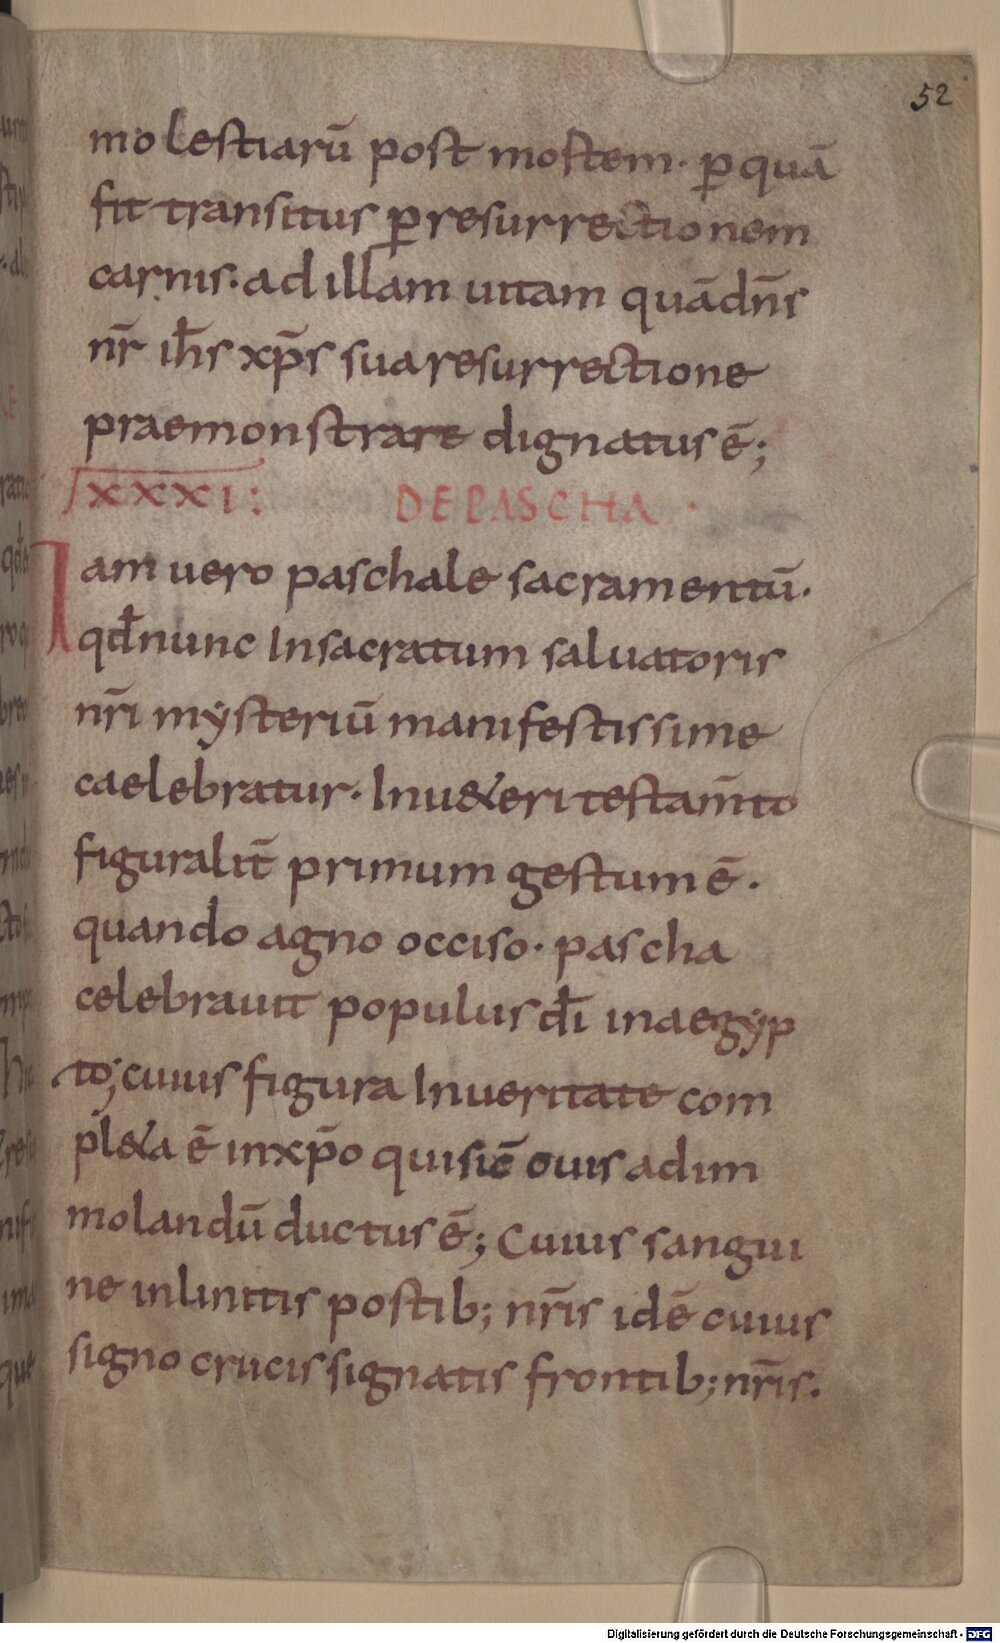 52
molestiarū post mortem· ꝑquā
fit transitus ꝑresurrectionem
carnis· ad illam uitam quā dn̄s
nr̄ ih̄s xp̄s sua resurrectione
praemonstrare dignatus ē;
XXXI: DE PASCHA·
Iam uero paschale sacramentū·
qd̄ nunc Insacratum saluatoris
nr̄i mẏsteriū manifestissime
caelebratur· Inu&eri testam̄to
figuralit̄ primum gestum ē·
quando agno occiso· pascha
celebrauit populus dī in aegẏp
to; cuius figura Inueritate com
pl&a ē in xp̄o qui sic̄ ouis ad im
molandū ductus ē; Cuius sangui
ne inlinitis postib; nr̄is idē cuius
signo crucis signatis frontib; nr̄is·
Digitalisierung gefördert durch die Deutsche Forschungsgemeinschaft - DFG